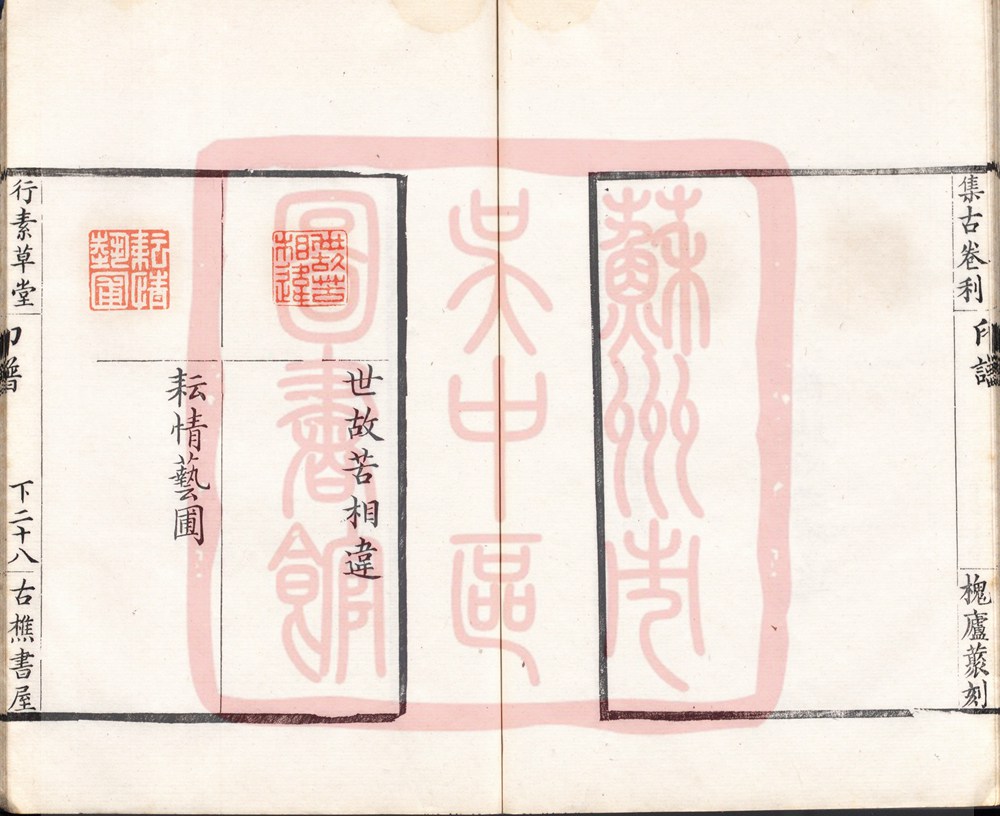 集古卷利
印譜
槐廬叢刻
世故苦相違
世故苦相違
耘情藝圃
耘情藝圃
行素草堂
印譜
下二十八
古樵書屋
蘇州市
吳中區
圖書館